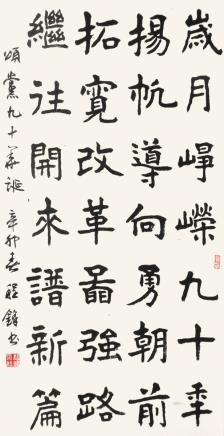 歲月崢嶸九十年
揚帆導向勇朝前
拓寬改革富強路
繼往開來譜新篇
頌黨九十華誕 辛卯春 程錦書